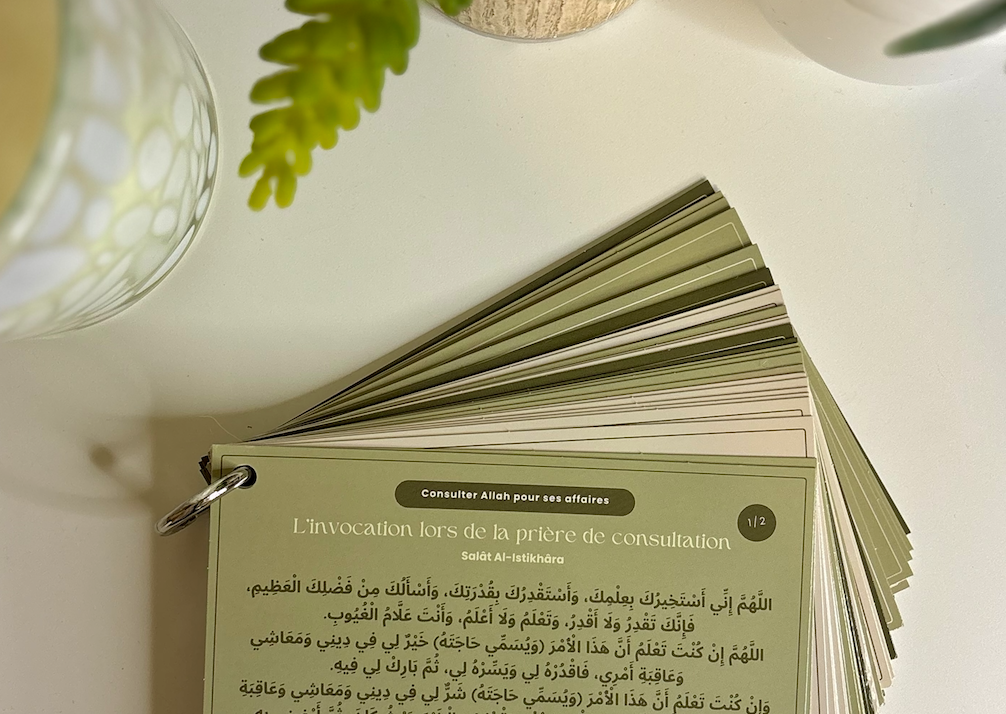 Consulter Allah pour ses affaires
1/2
L'invocation lors de la prière de consultation
Salât Al-Istikhâra
اللَّهُمَّ إِنِّي أَسْتَخِيرُكَ بِعِلْمِكَ، وَأَسْتَقْدِرُكَ بِقُدْرَتِكَ، وَأَسْأَلُكَ مِنْ فَضْلِكَ الْعَظِيمِ،
فَإِنَّكَ تَقْدِرُ وَلَا أَقْدِرُ، وَتَعْلَمُ وَلَا أَعْلَمُ، وَأَنْتَ عَلَّامُ الْغُيُوبِ.
اللَّهُمَّ إِنْ كُنْتَ تَعْلَمُ أَنَّ هَذَا الْأَمْرَ (وَيُسَمِّي حَاجَتَهُ) خَيْرٌ لِي فِي دِينِي وَمَعَاشِي
وَعَاقِبَةِ أَمْرِي، فَاقْدُرْهُ لِي وَيَسِّرْهُ لِي، ثُمَّ بَارِكْ لِي فِيهِ.
وَإِنْ كُنْتَ تَعْلَمُ أَنَّ هَذَا الْأَمْرَ (وَيُسَمِّي حَاجَتَهُ) شَرٌّ لِي فِي دِينِي وَمَعَاشِي وَعَاقِبَةِ